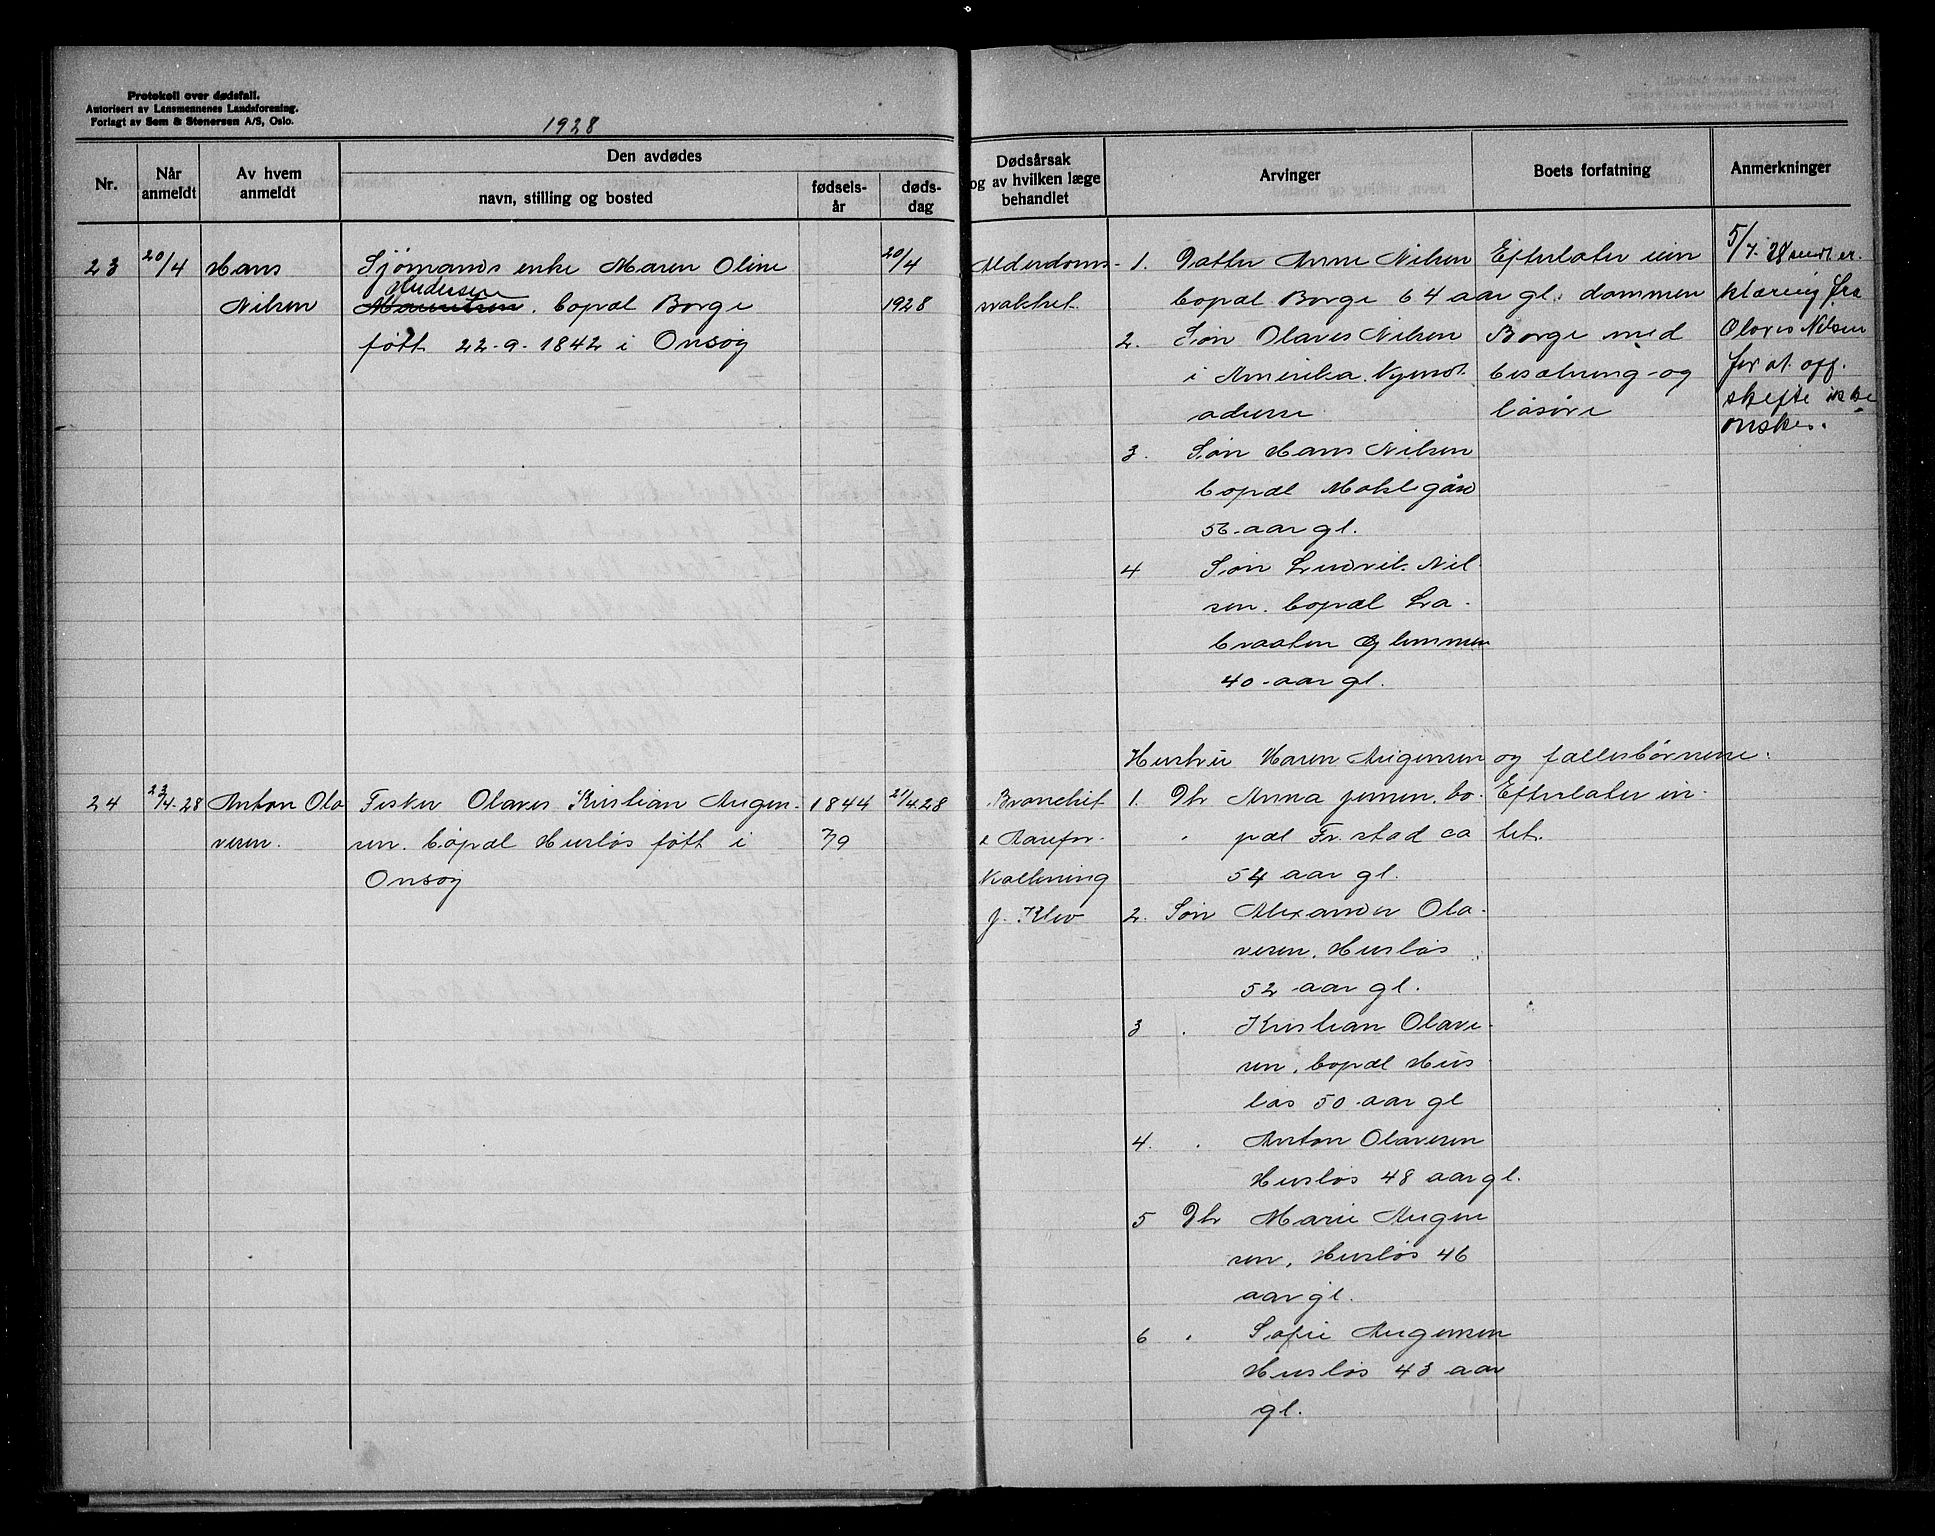 Protokoll over dødsfall.
Autorisert av Lensmennenes Landsforening.
Forlagt av Sem & Stenersen A/S, Oslo.
1928
Nr.
Når anmeldt
Av hvem anmeldt
Den avdødes
navn, stilling og bosted
fødsels-år
døds-dag
Dødsårsak og av hvilken læge behandlet
Arvinger
Boets forfatning
Anmerkninger
23
20/4
Hans
Nilsen
Sjømands enke Maren Oline
Andersen
bopæl Borge
født 22-9-1842 i Onsøy
20/4
1928
Alderdoms-
svakhet
1. Datter Anne Nilsen
bopæl Borge 64 aar gl.
2. Søn Olaves Nilsen
i Amerika.
adresse
3. Søn Hans Nilsen
bopæl
56 aar gl.
4 Søn Ludvik Nil-
sen. bopæl Lra-
braaten Glemmen
40 aar gl.
Efterlater
dommen
Borge med
besætning og
løsøre
5/7-28 er-
klæring fra
Olaves Nilsen
for at off.
skifte ikke
ønskes.
Hustru Maren Augensen og fællesbørnene:
24
23/4-28
Anton Ola
vesen.
Fisker Olaves Kristian Augen-
sen. bopæl Husløs født i
Onsøy
1844
7/9
21/4 28
Bronchit
& Aarefor-
kalkning
J. Klev
1. Dtr Anna Jensen, bo-
pæl Fr.stad ca
54 aar gl.
2. Søn Alexander Ola-
vesen, Husløs
52 aar gl.
3 " Kristian Olave-
sen, bopæl Hus
løs 50 aar gl
4. " Anton Olavesen
Husløs 48 aar gl.
5 Dtr Marie Augen
sen, Husløs 46
aar gl.
6 " Sofie Augensen
Husløs 43 aar
gl.
Efterlater in-
tet.